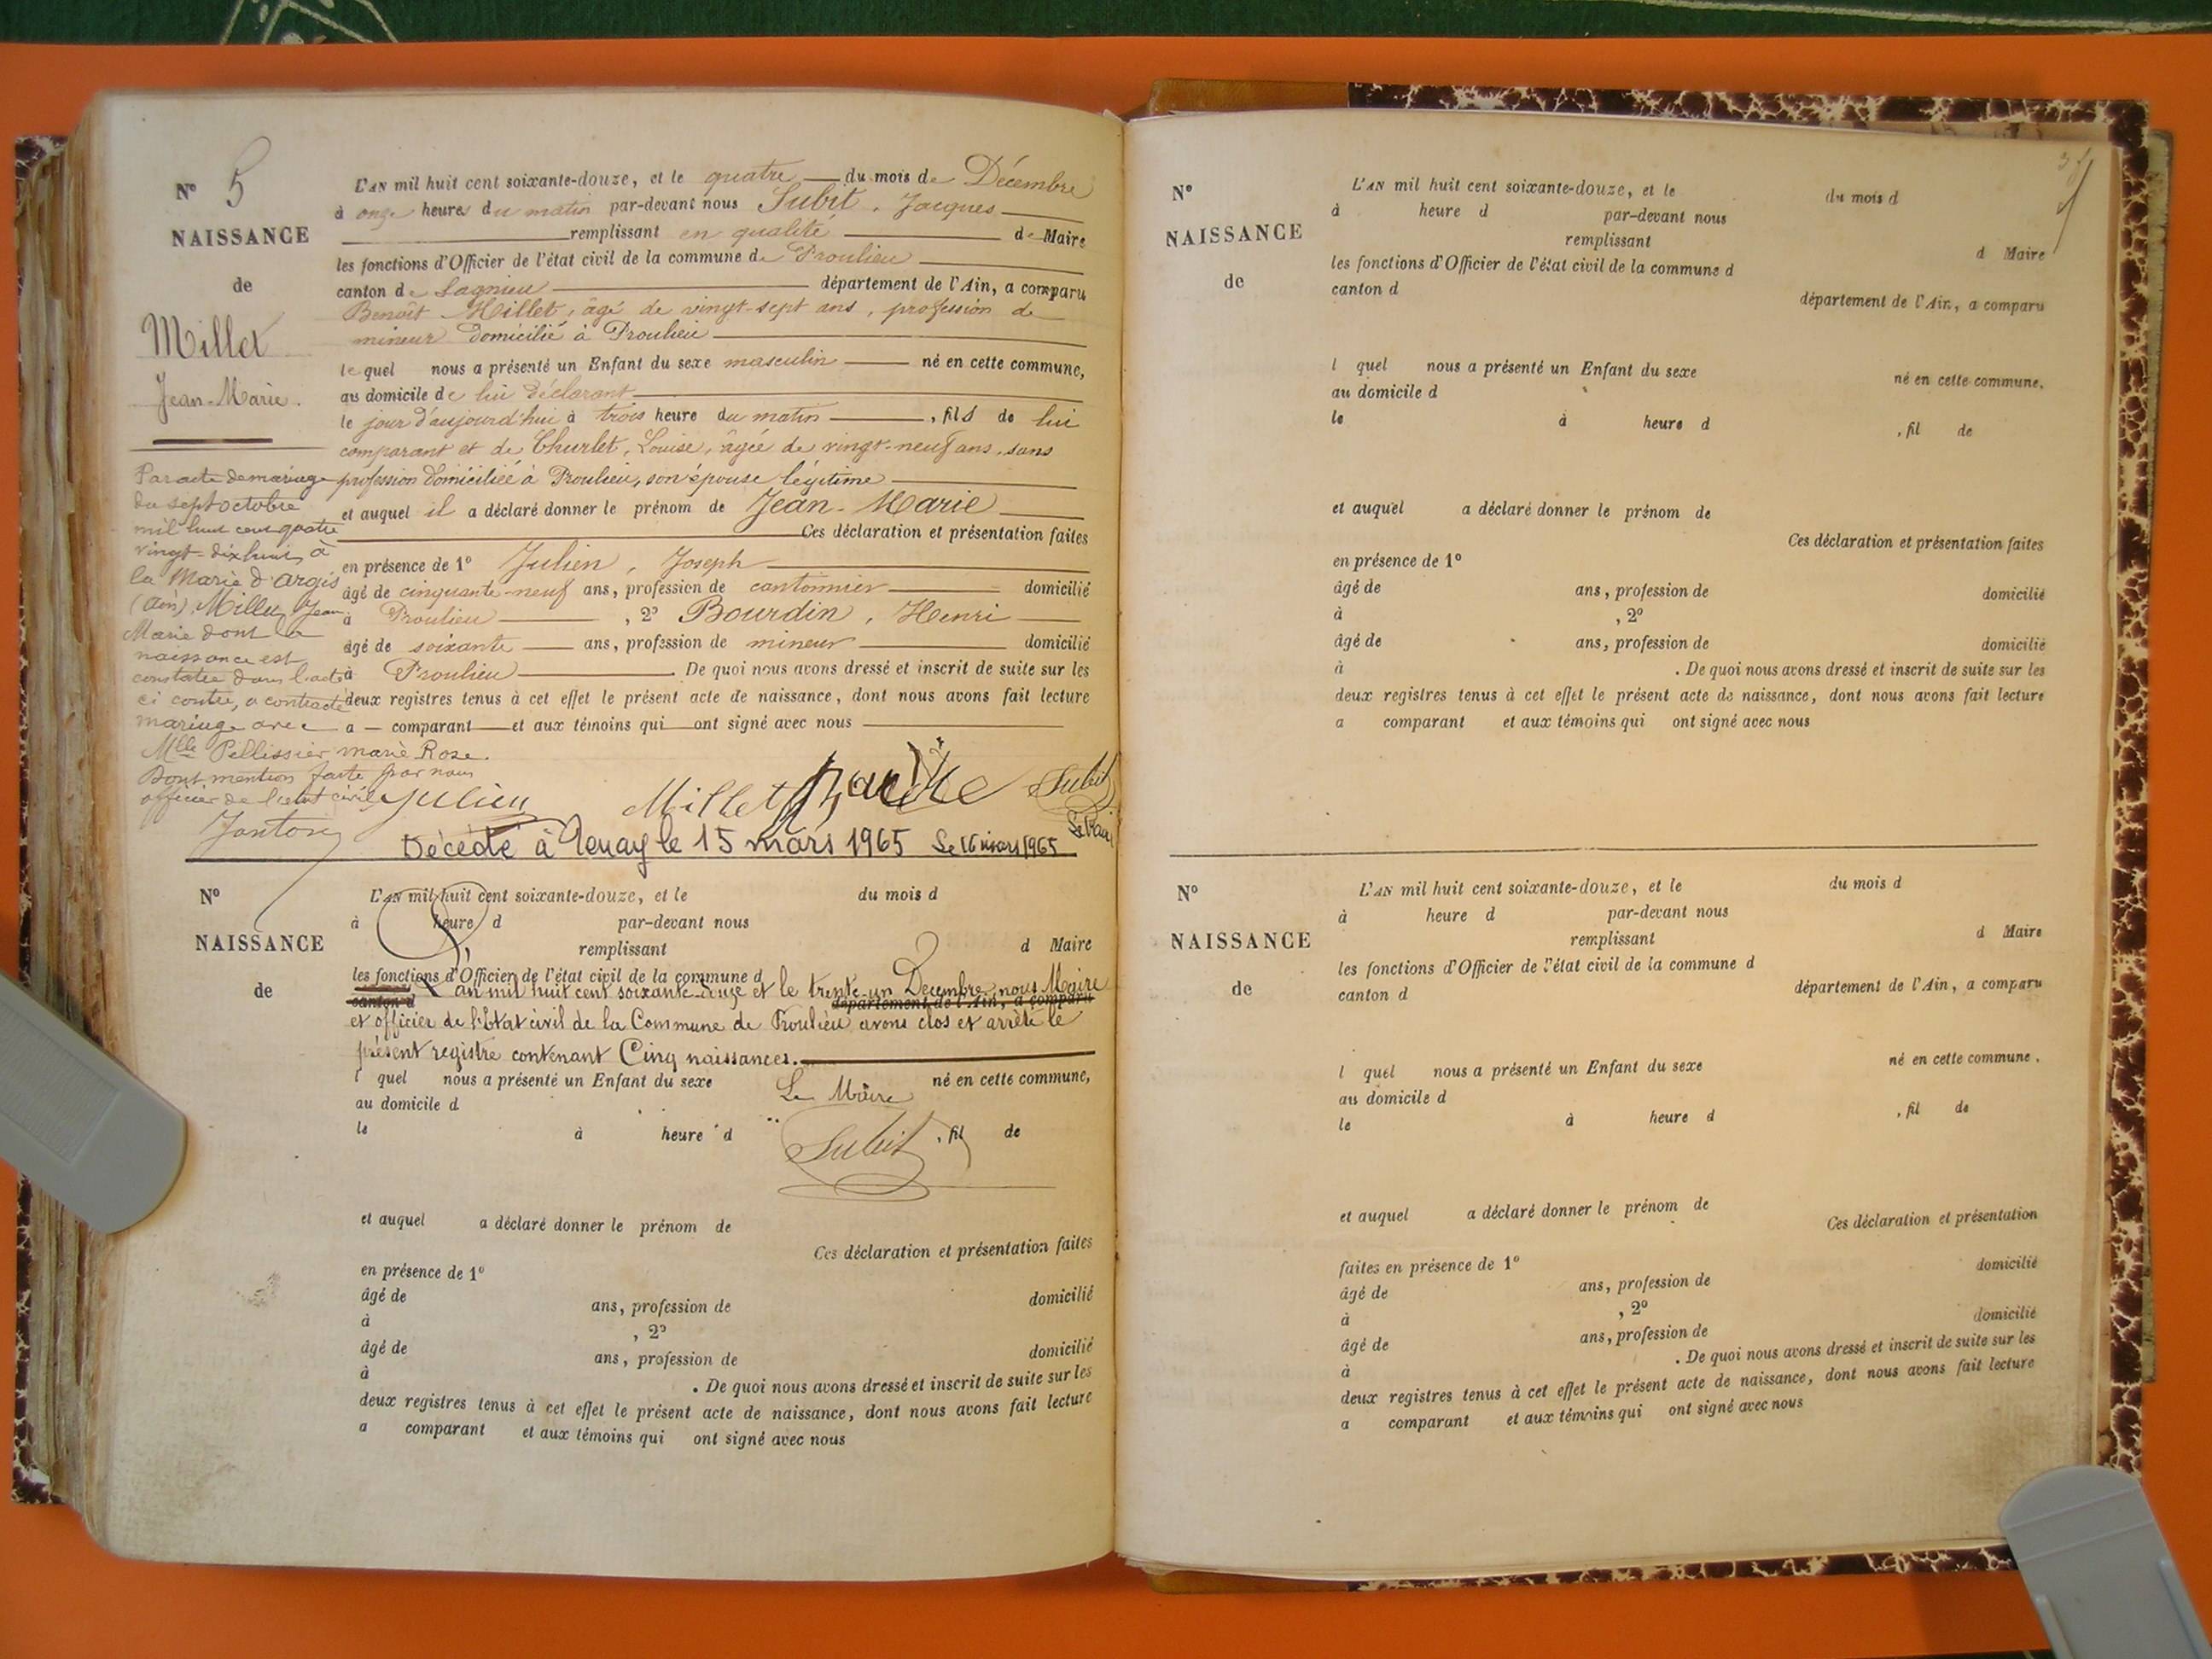 N° 5
NAISSANCE
de
Millet
Jean-Marie.
L'AN mil huit cent soixante-douze, et le quatre du mois de Décembre
à onze heures du matin par-devant nous Subit, Jacques
remplissant en qualité de Maire
les fonctions d'Officier de l'état civil de la commune de Proulieu
canton de Lagnieu département de l'Ain, a comparu
Benoît Millet, âgé de vingt-sept ans, profession de
mineur domicilié à Proulieu
lequel nous a présenté un Enfant du sexe masculin né en cette commune,
au domicile de lui déclarant
le jour d'aujourd'hui à trois heure du matin, fils de lui
comparant et de Churlet, Louise, âgée de vingt-neuf ans, sans
profession domiciliée à Proulieu, son épouse légitime
et auquel il a déclaré donner le prénom de Jean-Marie
Ces déclaration et présentation faites
en présence de 1° Julien, Joseph
âgé de cinquante-neuf ans, profession de cantonnier domicilié
à Proulieu, 2° Bourdin, Henri
âgé de soixante ans, profession de mineur domicilié
à Proulieu. De quoi nous avons dressé et inscrit de suite sur les
deux registres tenus à cet effet le présent acte de naissance, dont nous avons fait lecture
a comparant et aux témoins qui ont signé avec nous
Par acte de mariage
du sept octobre
mil huit cent quatre
vingt-dix huit, à
la Marie d'Argis
(Ain), Millet Jean
Marie dont la
naissance est
constatée dans l'acte
ci contre, a contracté
mariage avec
Mlle Pellissier marie Rose.
Dont mention faite par nous
officier de l'état civil
Julien Millet Subit
Décédé à Tenay le 15 mars 1965 Le 16 mars 1965
Le Maire
N°
NAISSANCE
de
L'AN mil huit cent soixante-douze, et le du mois d
à heure d par-devant nous
remplissant d Maire
les fonctions d'Officier de l'état civil de la commune d
canton d département de l'Ain, a comparu
L'an mil huit cent soixante-douze et le trente-un Decembre, nous Maire
et officier de l'Etat civil de la Commune de Proulieu avons clos et arrêté le
présent registre contenant Cinq naissances.
l quel nous a présenté un Enfant du sexe né en cette commune,
Le Maire
au domicile d
le à heure d , fil de
Subit
et auquel a déclaré donner le prénom de
Ces déclaration et présentation faites
en présence de 1°
âgé de ans, profession de domicilié
à , 2°
âgé de ans, profession de domicilié
à . De quoi nous avons dressé et inscrit de suite sur les
deux registres tenus à cet effet le présent acte de naissance, dont nous avons fait lecture
a comparant et aux témoins qui ont signé avec nous
N°
NAISSANCE
de
L'AN mil huit cent soixante-douze, et le du mois d
à heure d par-devant nous
remplissant d Maire
les fonctions d'Officier de l'état civil de la commune d
canton d département de l'Ain, a comparu
l quel nous a présenté un Enfant du sexe né en cette commune.
au domicile d
le à heure d , fil de
et auquel a déclaré donner le prénom de
Ces déclaration et présentation faites
en présence de 1°
âgé de ans, profession de domicilié
à , 2°
âgé de ans, profession de domicilié
à . De quoi nous avons dressé et inscrit de suite sur les
deux registres tenus à cet effet le présent acte de naissance, dont nous avons fait lecture
a comparant et aux témoins qui ont signé avec nous
N°
NAISSANCE
de
L'AN mil huit cent soixante-douze, et le du mois d
à heure d par-devant nous
remplissant d Maire
les fonctions d'Officier de l'état civil de la commune d
canton d département de l'Ain, a comparu
l quel nous a présenté un Enfant du sexe né en cette commune.
au domicile d
le à heure d , fil de
et auquel a déclaré donner le prénom de
Ces déclaration et présentation
faites en présence de 1° domicilié
âgé de ans, profession de
à , 2° domicilié
âgé de ans, profession de
à . De quoi nous avons dressé et inscrit de suite sur les
deux registres tenus à cet effet le présent acte de naissance, dont nous avons fait lecture
a comparant et aux témoins qui ont signé avec nous